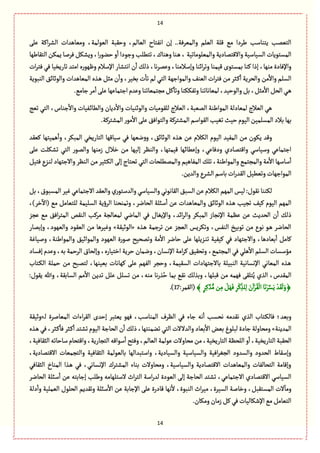 14
التعصب يتناسب طردا مع قلة العلم والمعرفة.. إن انفتاح العالم، وحقبة العولمة، ومعاهدات الشراكة على
المستويات السياسية والاقتصادية والمعلوماتية ، هنا وهناك ، تتطلب وجودا أو حضورا ، ويشكل فرصا يمكن التقاطها
والإفادة منها، إذا كنا بمستوى قيمنا وتراثنا وإسلامنا ، وعصرنا ، ذلك أن انتشار الإسلام وظهوره امتد تاريخيا في فترات
السلم والأمن والحرية أكثر من فترات العنف والمواجهة التي لم تأت بخير ، وأن مثل هذه المعاهدات والوثائق النبوية
هي الحل الأمثل ، بل والوحيد ، لمعاناتنا وتفككنا وتآكل مجتمعاتنا وعدم اجتماعها على أمر جامع.
هي العلاج لمعادلة المواطنة الصعبة ، العلاج للقوميات والوثنيات والأديان والطائفيات والأجناس ، التي تعج
بها بلاد المسلمين اليوم حيث تغيب القواسم المشتركة والتوافق على الأمور المشتركة.
وقد يكون من المفيد اليوم الكلام عن هذه الوثائق ، ووضعها في سياقها التاريخي المبكر ، وأهميتها كعقد
اجتماعي وسياسي واقتصادي ودفاعي ، وإعطائها قيمتها ، والنظر إليها من خلال زمنها والصور التي تشكلت على
أساسها الأمة والمجتمع والمواطنة ، تلك المفاهيم والمصطلحات التي تحتاج إلى الكثير من النظر والاجتهاد لنزع فتيل
المواجهات وتعطيل القدرات باسم الشرع والدين.
لكننا نقول: ليس المهم الكلام عن السبق القانوني والسياسي والدستوري والعقد الاجتماعي غير المسبوق ، بل
المهم اليوم كيف تجيب هذه الوثائق والمعاهدات عن أسئلة الحاضر ، وتمنحنا الرؤية السليمة للتعامل مع (الآخر)،
ذلك أن الحديث عن عظمة الإنجاز المبكر والرائد، والإيغال في الماضي لمعالجة مركب النقص المترافق مع عجز
الحاضر هو نوع من توبيخ النفس ، وتكريس العجز عن ترجمة هذه «الوثيقة» وغيرها من العقود والعهود ، وإبصار
كامل أبعادها ، والاجتهاد في كيفية تنزيلها على حاضر الأمة وتصحيح صورة العهود والمواثيق والمواطنة ، وصياغة
مؤسسات السلم الأهلي في المجتمع ، وتحقيق كرامة الإنسان ، وضمان حرية اختياره ، وإلحاق الرحمة به ، وعدم إفساد
هذه المعاني الإنسانية النبيلة بالاجتهادات السقيمة ، وحجر الفهم على كهانات بعينها ، لتصبح من حملة الكتاب
المقدس ، الذي يُتلقى فهمه من قبلها ، وبذلك نقع بما حُذرنا منه ، من تسلل علل تدين الأمم السابقة ، والله يقول:
﴿ وَلَقَدْ يَسَّرْنَا الْقُرْآنَ لِلذِّكْرِ فَهَلْ مِن مُّدَّكِرٍ ﴾ (القمر:17).
وبعد؛ فالكتاب الذي نقدمه نحسب أنه جاء في الظرف المناسب ، فهو يعتبر إحدى القراءات المعاصرة لـ«وثيقة
المدينة» ومحاولة جادة لبلوغ بعض الأبعاد والدلالات التي تضمنتها ، ذلك أن الحاجة اليوم تشتد أكثر فأكثر ، في هذه
الحقبة التاريخية ، أو اللحظة التاريخية ، من محاولات عولمة العالم ، وفتح أسواقه التجارية ، واقتحام ساحاته الثقافية ،
وإسقاط الحدود والسدود الجغرافية والسياسية والسيادية ، واستبدالها بالعولمة الثقافية والتجمعات الاقتصادية ،
وإقامة التحالفات والمعاهدات الاقتصادية والسياسية ، ومحاولات بناء المشترك الإنساني ، في هذا المناخ الثقافي
السياسي الاقتصادي الاجتماعي ، تشتد الحاجة إلى العودة لدراسة التراث لاستلهامه وطلب إجابته عن أسئلة الحاضر
ومآلات المستقبل ، وخاصة السيرة ، ميراث النبوة ، لأنها قادرة على الإجابة عن الأسئلة وتقديم الحلول العملية وأدلة
التعامل مع الإشكاليات في كل زمان ومكان.
14